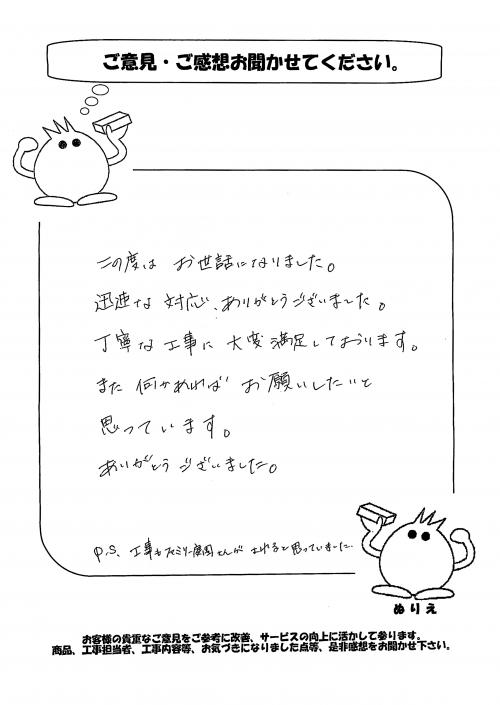 ご意見・ご感想お聞かせてください。
この度は お世話になりました。
迅速な 対応、ありがとうございました。
丁寧な工事に 大変満足しております。
また 何かあれば お願いしたいと
思っています。
ありがとうございました。
P.S. 工事も
と思っていました
ぬりえ
お客様の貴重なご意見をご参考に改善、サービスの向上に活かして参ります。
商品、工事担当者、工事内容等、お気づきになりました点等、是非感想をお聞かせ下さい。